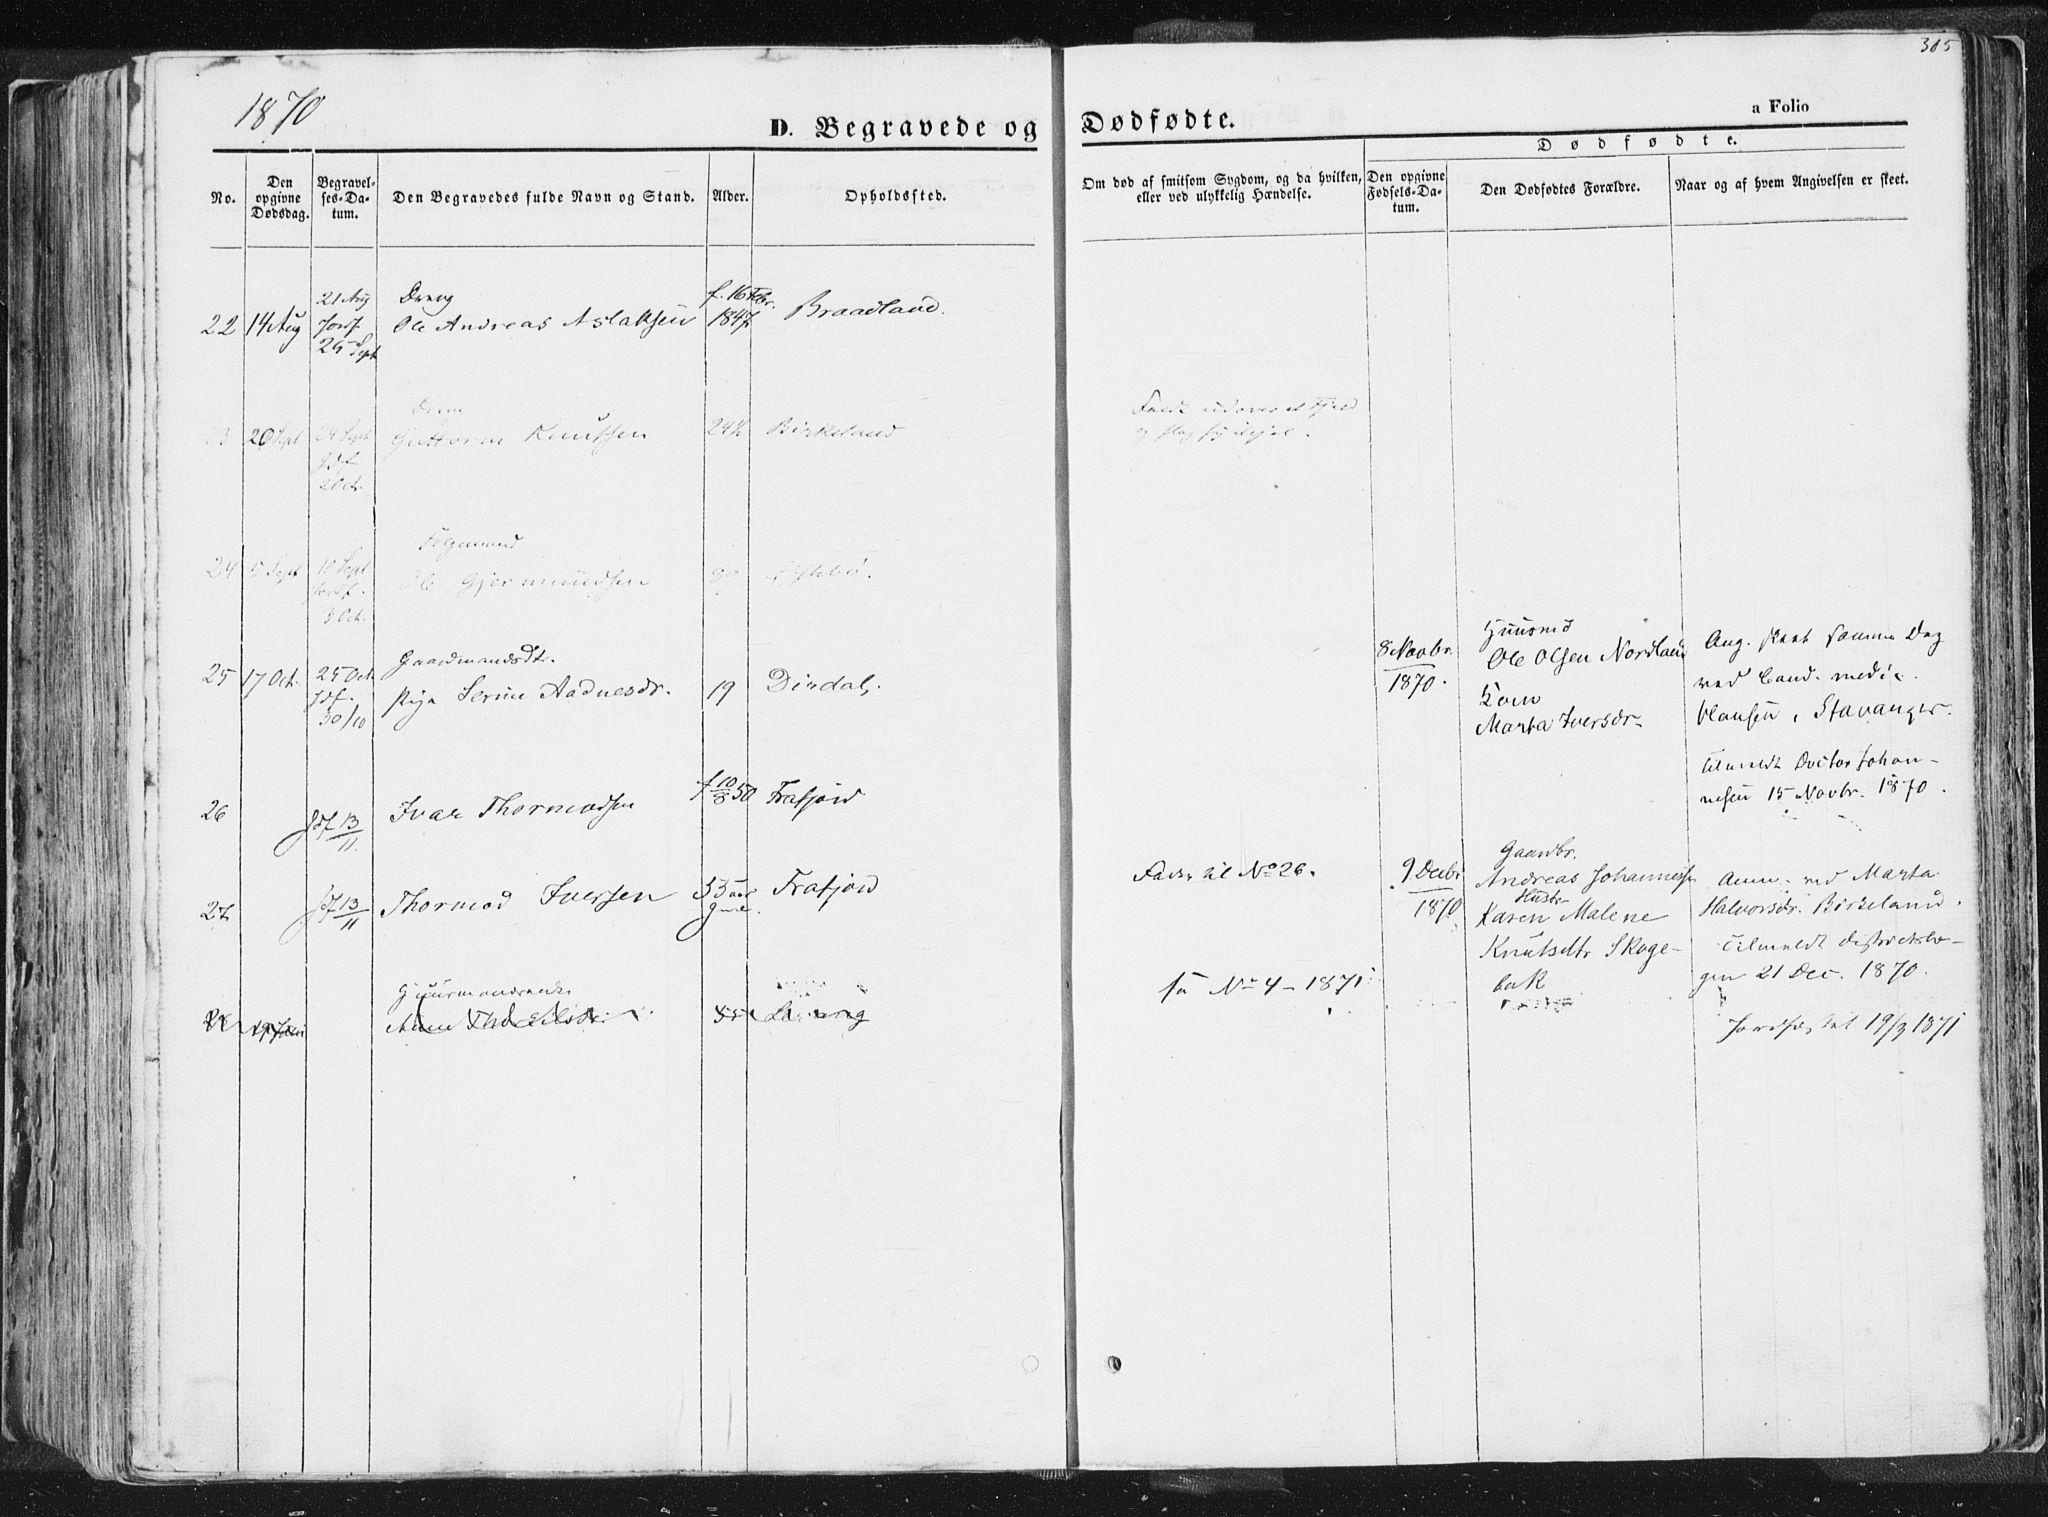 385
1870
a Folio
D. Begravede og Dødfødte.
Dødfødte.
No.
Den opgivne Dødsdag.
Begravelses-Datum.
Den Begravedes fulde Navn og Stand.
Alder.
Opholdssted.
Om død af smitsom Sygdom, og da hvilken, eller ved ulykkelig Hændelse.
Den opgivne Fødsels-Datum.
Den Dødfødtes Forældre.
Naar og af hvem Angivelsen er skeet.
21 Aug Dreng f. 16 Febr.
22 14 Aug Jordf Ole Andreas Aslaksen 1847 Braadland.
25 Sept
Dreng
23 20 Sept 24 Sept Guttorm Knutsen 24½ Birkeland
Jdf
2 Oct.
og slog sig ihjel.
24 5 Sept 10 Sept Ole Gjermundsen 80
Jordf.
3 Oct.
Gaardmandsdt.
25 17 Oct. 25 Oct. Serine Aadnesdr. 19 Dirdal.
Jdf.
30/10
8 Novbr.
1870.
Huusmd
Ole Olsen Nordland
Kone
Marta Iversdr.
Ang. skeet samme Dag
ved Cand. medic.
Hansen, Stavanger.
Tilmeldt Doctor Johan-
nesen 15 Novbr. 1870.
26 Jdf 13/11. Ivar Thormodsen f 10/8 50 Frafjord
27 Jdf 13/11 Thormod Iversen 55 aar gml. Frafjord
Fader til No 26.
9 Decbr
1870
Gaardbr.
Andreas Johannesen
Hustr.
Karen Malene
Knutsdtr Skoge-
bak
Anm. ved Marta
Halvorsdr. Birkeland.
Tilmeldt Districtslæ-
gen 21 Dec. 1870.
Jordfæstet 19/3 1871
Anne
55
sa No 4 - 1871